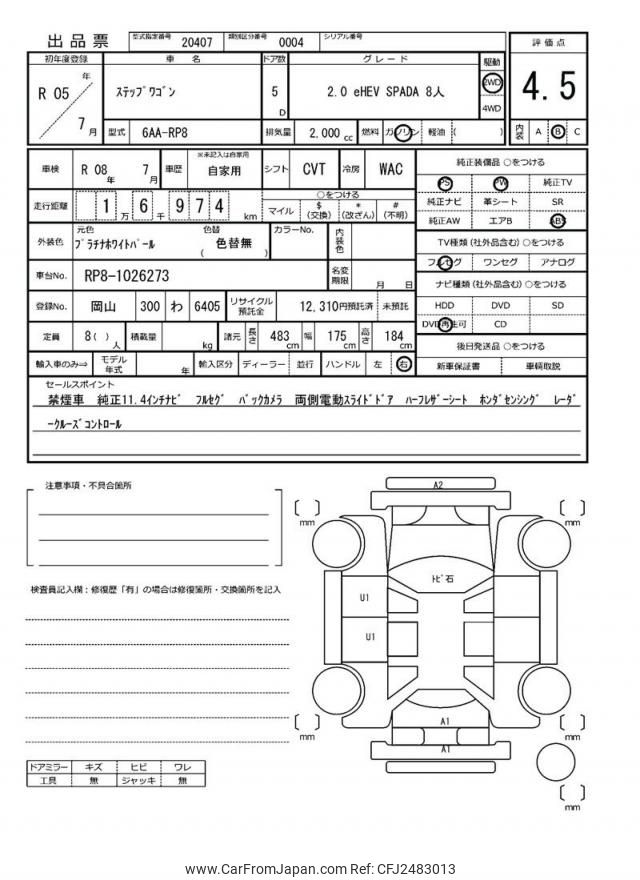 出品票
型式指定番号 20407 類別区分番号 0004 シリアル番号
初年度登録 車名 ドア数 グレード 駆動 評価点
R 05 年 7 月 ステップワゴン 5 D 2.0 eHEV SPADA 8人 2WD 4WD 4.5
型式 6AA-RP8 排気量 2,000 cc 燃料 ガソリン 軽油 ( ) 内装 A B C
車検 R 08 年 7 月 車歴 ※未記入は自家用 自家用 シフト CVT 冷房 WAC
走行距離 1 万 6 千 9 7 4 km ○をつける マイル $ (交換) * (改ざん) # (不明)
外装色 元色 プラチナホワイトパール 色替 ( 色替無 ) カラーNo. 内装色
車台No. RP8-1026273 名変期限 月 日
登録No. 岡山 300 わ 6405 リサイクル預託金 12,310円預託済 未預託
定員 8 ( ) 人 積載量 kg 諸元 長さ 483 cm 幅 175 cm 高さ 184 cm
輸入車のみ⇒ モデル年式 年 輸入区分 ディーラー 並行 ハンドル 左 右
純正装備品 ○をつける
PS PW 純正TV
純正ナビ 革シート SR
純正AW エアB ABS
TV種類 (社外品含む) ○をつける
フルセグ ワンセグ アナログ
ナビ種類 (社外品含む) ○をつける
HDD DVD SD
DVD再生可 CD
後日発送品 ○をつける
新車保証書 車輌取説
セールスポイント
禁煙車 純正11.4インチナビ フルセグ バックカメラ 両側電動スライドドア ハーフレザーシート ホンダセンシング レーダ
ークルーズコントロール
注意事項・不具合箇所
検査員記入欄：修復歴「有」の場合は修復箇所・交換箇所を記入
ドアミラー キズ ヒビ ワレ
工具 無 ジャッキ 無
A2
mm
mm
トビ石
U1
U1
mm
mm
A1
A1
mm
www.CarFromJapan.com Ref: CFJ2483013